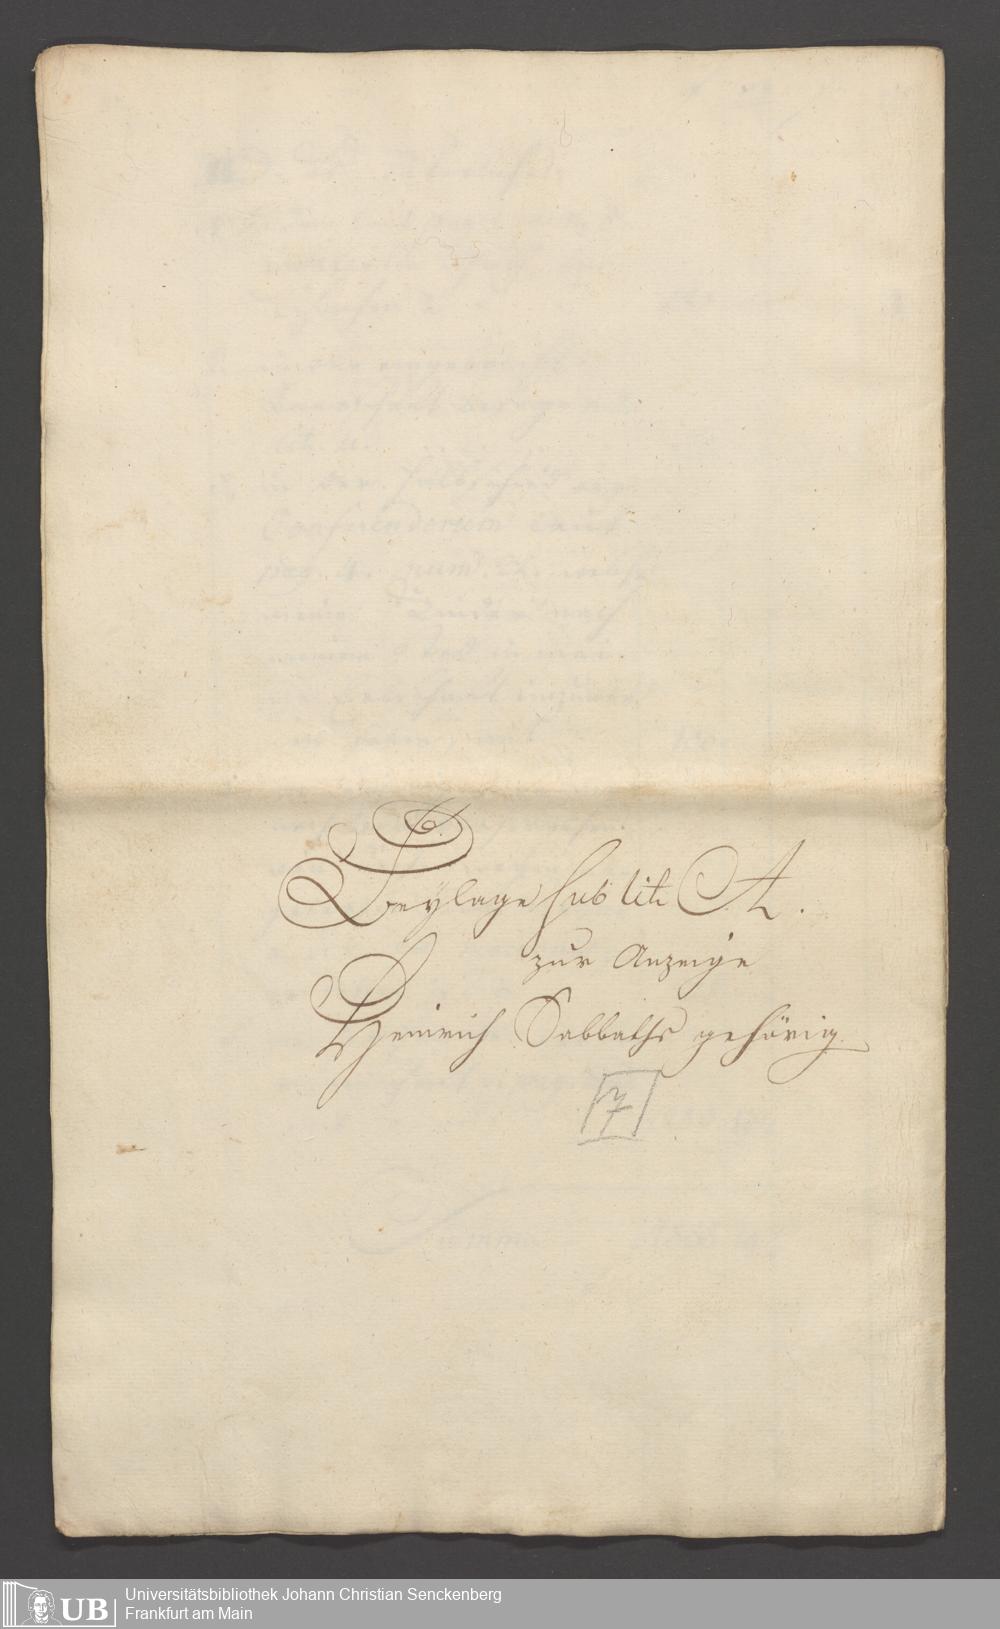 Beylage sub lit. A.
zur Anzeige
Heinrich Sabbaths gehörig.
7
Universitätsbibliothek Johann Christian Senckenberg
Frankfurt am Main
UB